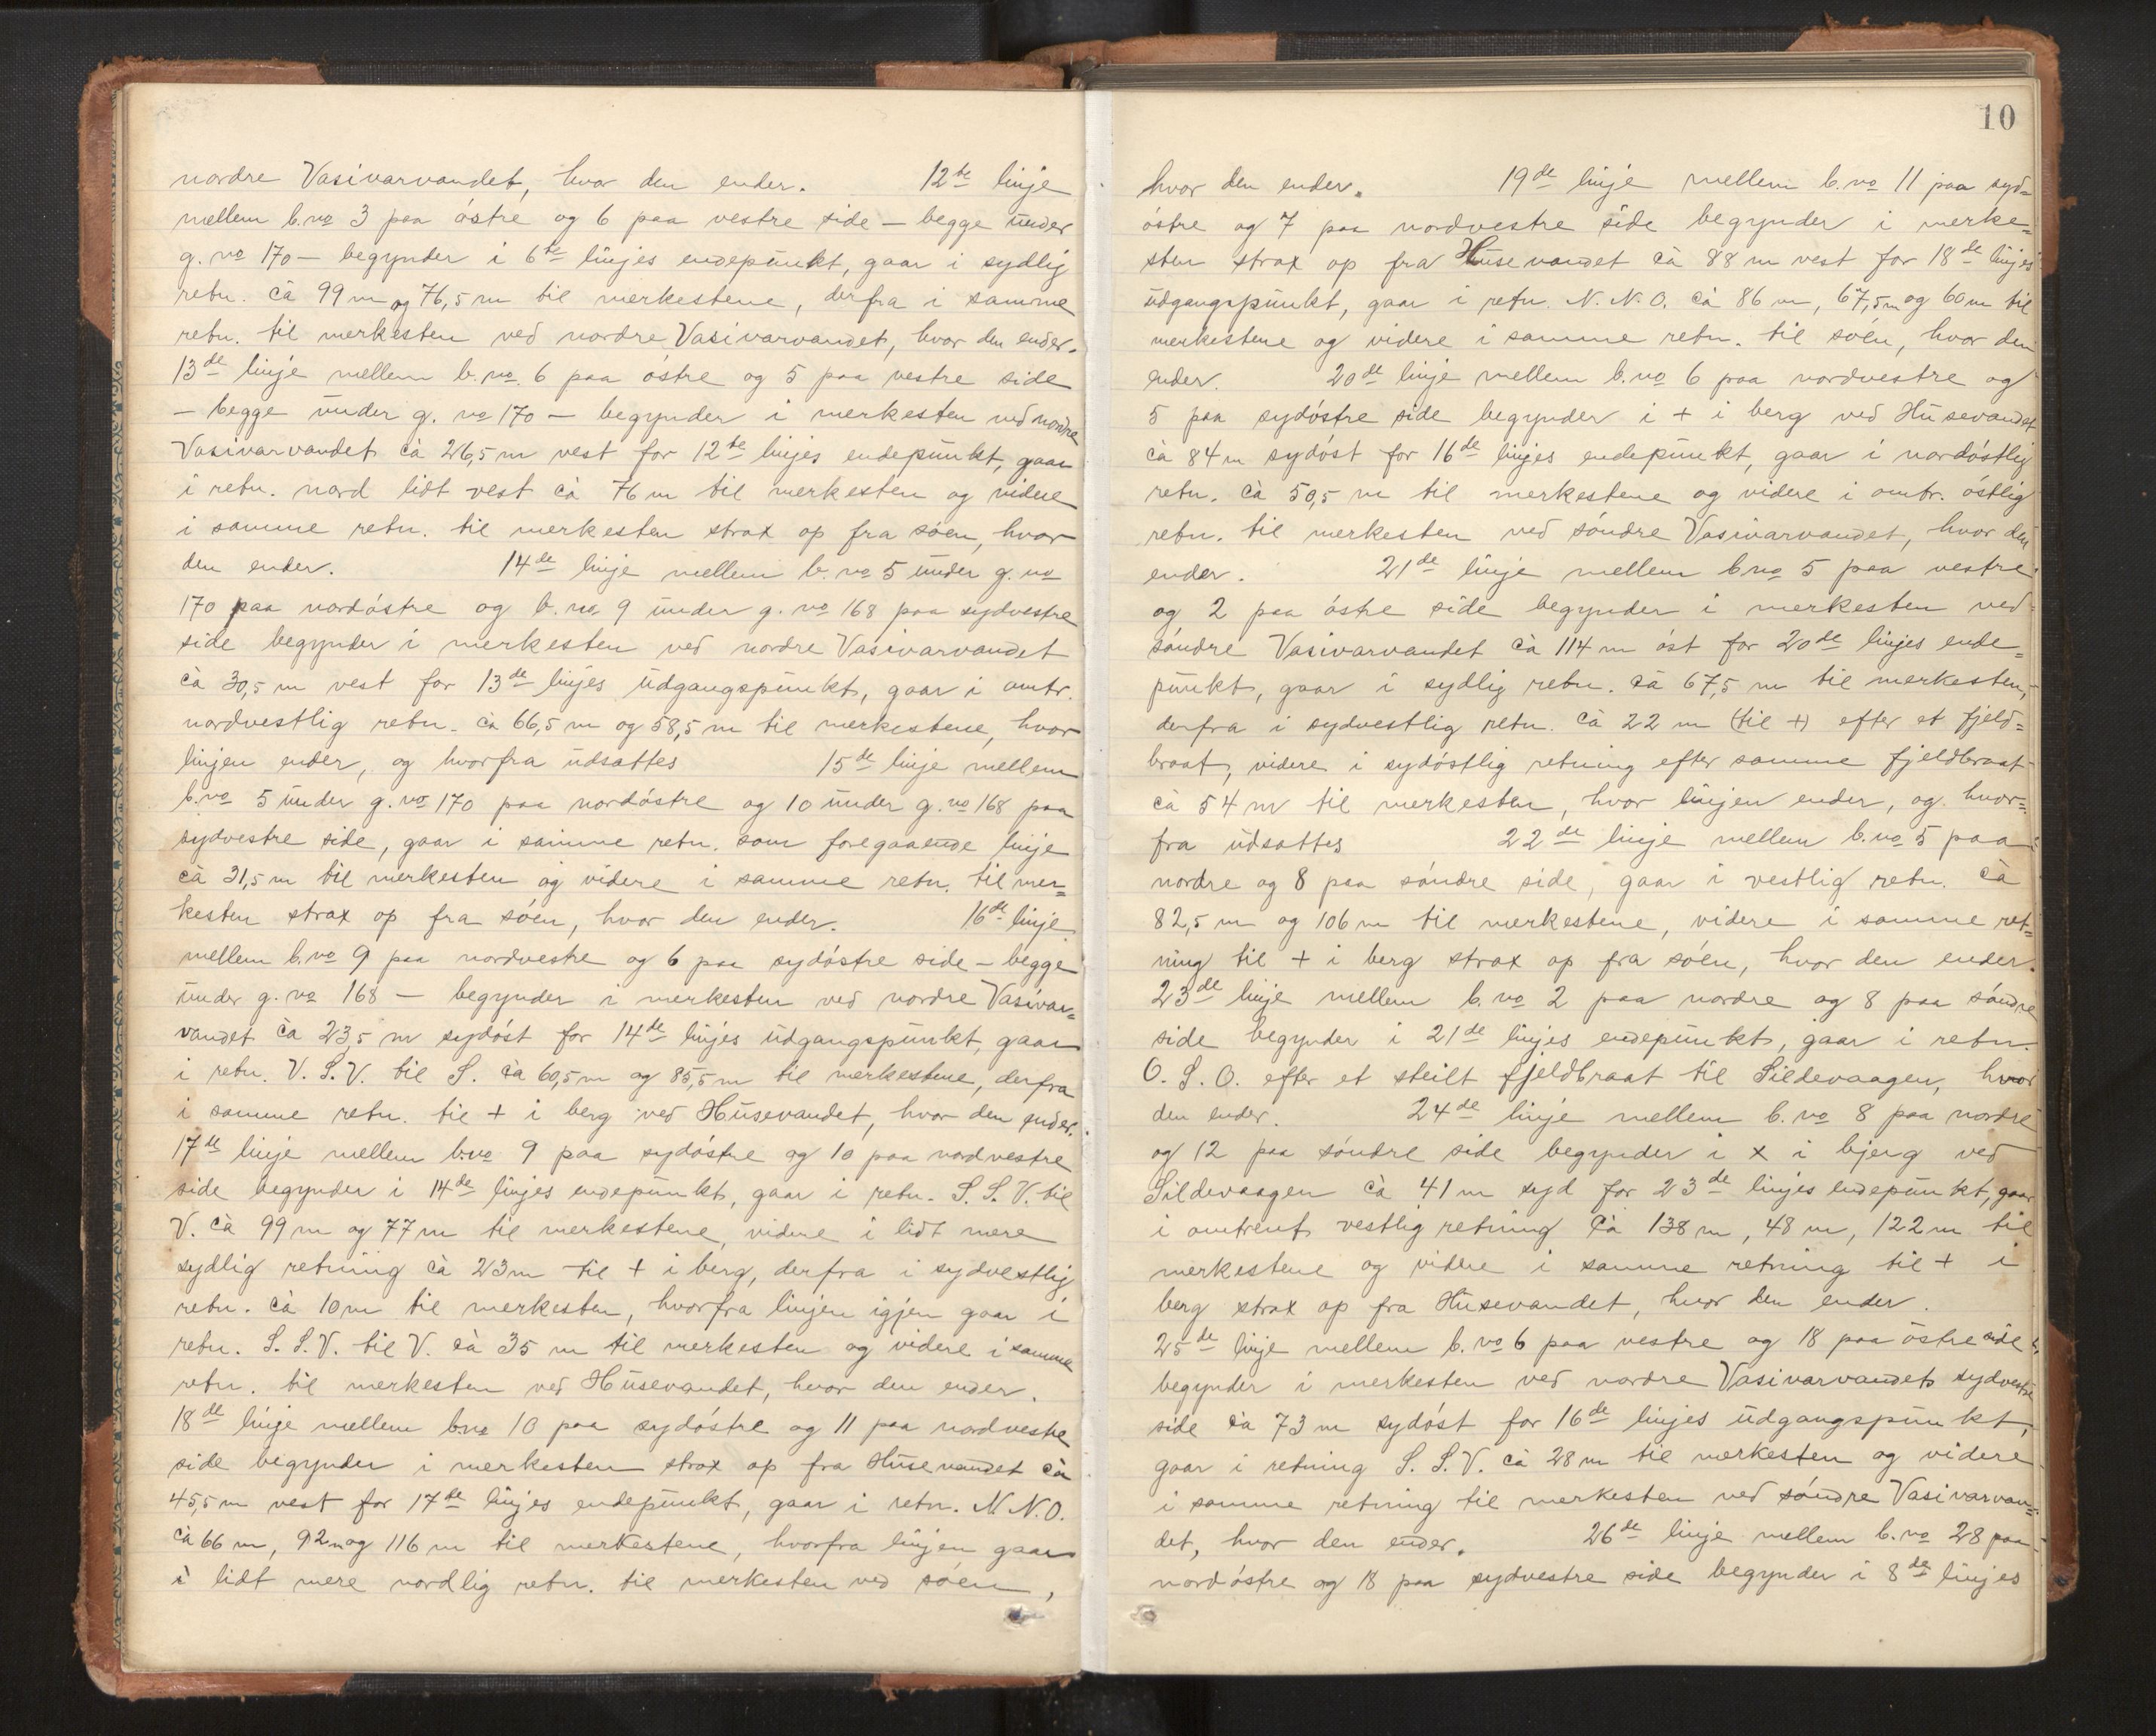 nordre Vasivarvandet, hvor den ender. 12te linje
mellem b.no 3 paa östre og 6 paa vestre side – begge under
g. no 170 – begynder i 6te linjes endepunkt, gaar i sydlig
retn. cà 99 m og 76,5 m til merkestene, derfra i samme
retn. til merkesten ved nordre Vasivarvandet, hvor den ender.
13de linje mellem b.no. 6 paa östre og 5 paa vestre side
– begge under g. no 170 – begynder i merkesten ved nordre
Vasivarvandet cà 26,5 m vest for 12te linjes endepunkt, gaar
i retn. nord lidt vest cà 76 m til merkesten og videre
i samme retn. til merkesten strax op fra söen, hvor
den ender. 14de linje mellem b. no 5 under g. no
170 paa nordöstre og b. no 9 under g. no 168 paa sydvestre
side begynder i merkesten ved nordre Vasivarvandet
cà 30,5 m vest for 13de linjes udgangspunkt, gaar i omtr.
nordvestlig retn. cà 66,5 m og 58,5 m til merkestene, hvor
linjen ender, og hvorfra udsattes 15de linje mellem
b.no 5 under g. no 170 paa nordöstre og 10 under g. no 168 paa
sydvestre side, gaar i samme retn. som foregaaende linje
cà 31,5 m til merkesten og videre i samme retn. til mer=
kesten strax op fra söen, hvor den ender. 16de linje
mellem b.no 9 paa nordvestre og 6 paa sydöstre side – begge
under g. no 168 – begynder i merkesten ved nordre Vasivar=
vandet cà 23,5 m sydöst for 14de linjes udgangspunkt, gaar
i retn. V. S. V. til S. cà 60,5 m og 85,5 m til merkestene, derfra
i samme retn. til + i berg ved Husevandet, hvor den ender.
17de linje mellem b.no 9 paa sydöstre og 10 paa nordvestre
side begynder i 14de linjes endepunkt, gaar i retn. S. S. V. til
V. cà 99 m og 77 m til merkestene, videre i lidt mere
sydlig retning cà 23 m til + i berg, derfra i sydvestlig
retn. cà 10 m til merkesten, hvorfra linjen igjen gaar i
retn. S. S. V. til V. cà 35 m til merkesten og videre i samme
retn. til merkesten ved Husevandet, hvor den ender.
18de linje mellem b.no 10 paa sydöstre og 11 paa nordvestre
side begynder i merkesten strax op fra Husevandet cà
45,5 m vest for 17de linjes endepunkt, gaar i retn. N. N. O.
cà 66 m, 92 m og 116 m til merkestene, hvorfra linjen gaar
i lidt mere nordlig retn. til merkesten ved söen,
10
hvor den ender. 19de linje mellem b.no 11 paa syd=
östre og 7 paa nordvestre side begynder i merke=
sten strax op fra Husevandet cà 88 m vest for 18de linjes
udgangspunkt, gaar i retn. N. N. O. cà 86 m, 67,5 m og 60 m til
merkestene og videre i samme retn. til söen, hvor den
ender. 20de linje mellem b.no 6 paa nordvestre og
5 paa sydöstre side begynder i + i berg ved Husevandet
cà 84 m sydöst for 16de linjes endepunkt, gaar i nordöstlig
retn. cà 50,5 m til merkestene og videre i omtr. östlig
retn. til merkesten ved söndre Vasivarvandet, hvor den
ender. 21de linje mellem b.no 5 paa vestre
og 2 paa östre side begynder i merkesten ved
söndre Vasivarvandet cà 114 m öst for 20de linjes ende=
punkt, gaar i sydlig retn. cà 67,5 m til merkesten,
derfra i sydvestlig retn. cà 22 m (til +) efter et fjeld=
braat, videre i sydöstlig retning efter samme fjeldbraat
cà 54 m til merkesten, hvor linjen ender, og hvor=
fra udsattes 22de linje mellem b.no 5 paa
nordre og 8 paa söndre side, gaar i vestlig retn. cà
82,5 m og 106 m til merkestene, videre i samme ret=
ning til + i berg strax op fra söen, hvor den ender.
23de linje mellem b.no 2 paa nordre og 8 paa söndre
side begynder i 21de linjes endepunkt, gaar i retn.
O. S. O. efter et steilt fjeldbraat til Sildevaagen, hvor
den ender. 24de linje mellem b.no 8 paa nordre
og 12 paa söndre side begynder i x i bjerg ved
Sildevaagen cà 41 m syd for 23de linjes endepunkt, gaar
i omtrent vestlig retning cà 138 m, 48 m, 122 m til
merkestene og videre i samme retning til + i
berg strax op fra Husevandet, hvor den ender.
25de linje mellem b.no 6 paa vestre og 18 paa östre side
begynder i merkesten ved nordre Vasivarvandets sydvestre
side cà 73 m sydöst for 16de linjes udgangspunkt,
gaar i retning S. S. V. cà 28 m til merkesten og videre
i samme retning til merkesten ved söndre Vasivarvan=
det, hvor den ender. 26de linje mellem b.no 28 paa
nordöstre og 18 paa sydvestre side begynder i 8de linjes